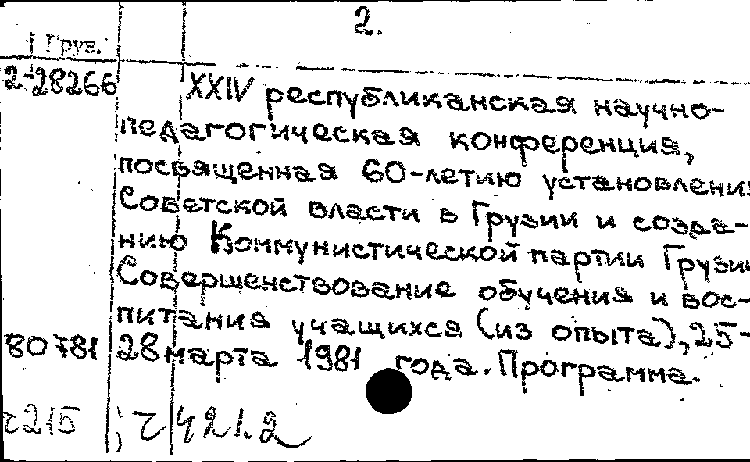 2.
Груз.
2-28266 XXIV республиканская научно-
педагогическая конференция,
посвященная 60-летию установлени
Советской власти в Грузии и созда-
нию Коммунистической партии Грузи
Совершенствование обучения и вос-
питания учащихся (из опыта), 25-
80781 28 марта 1981 года. Программа.